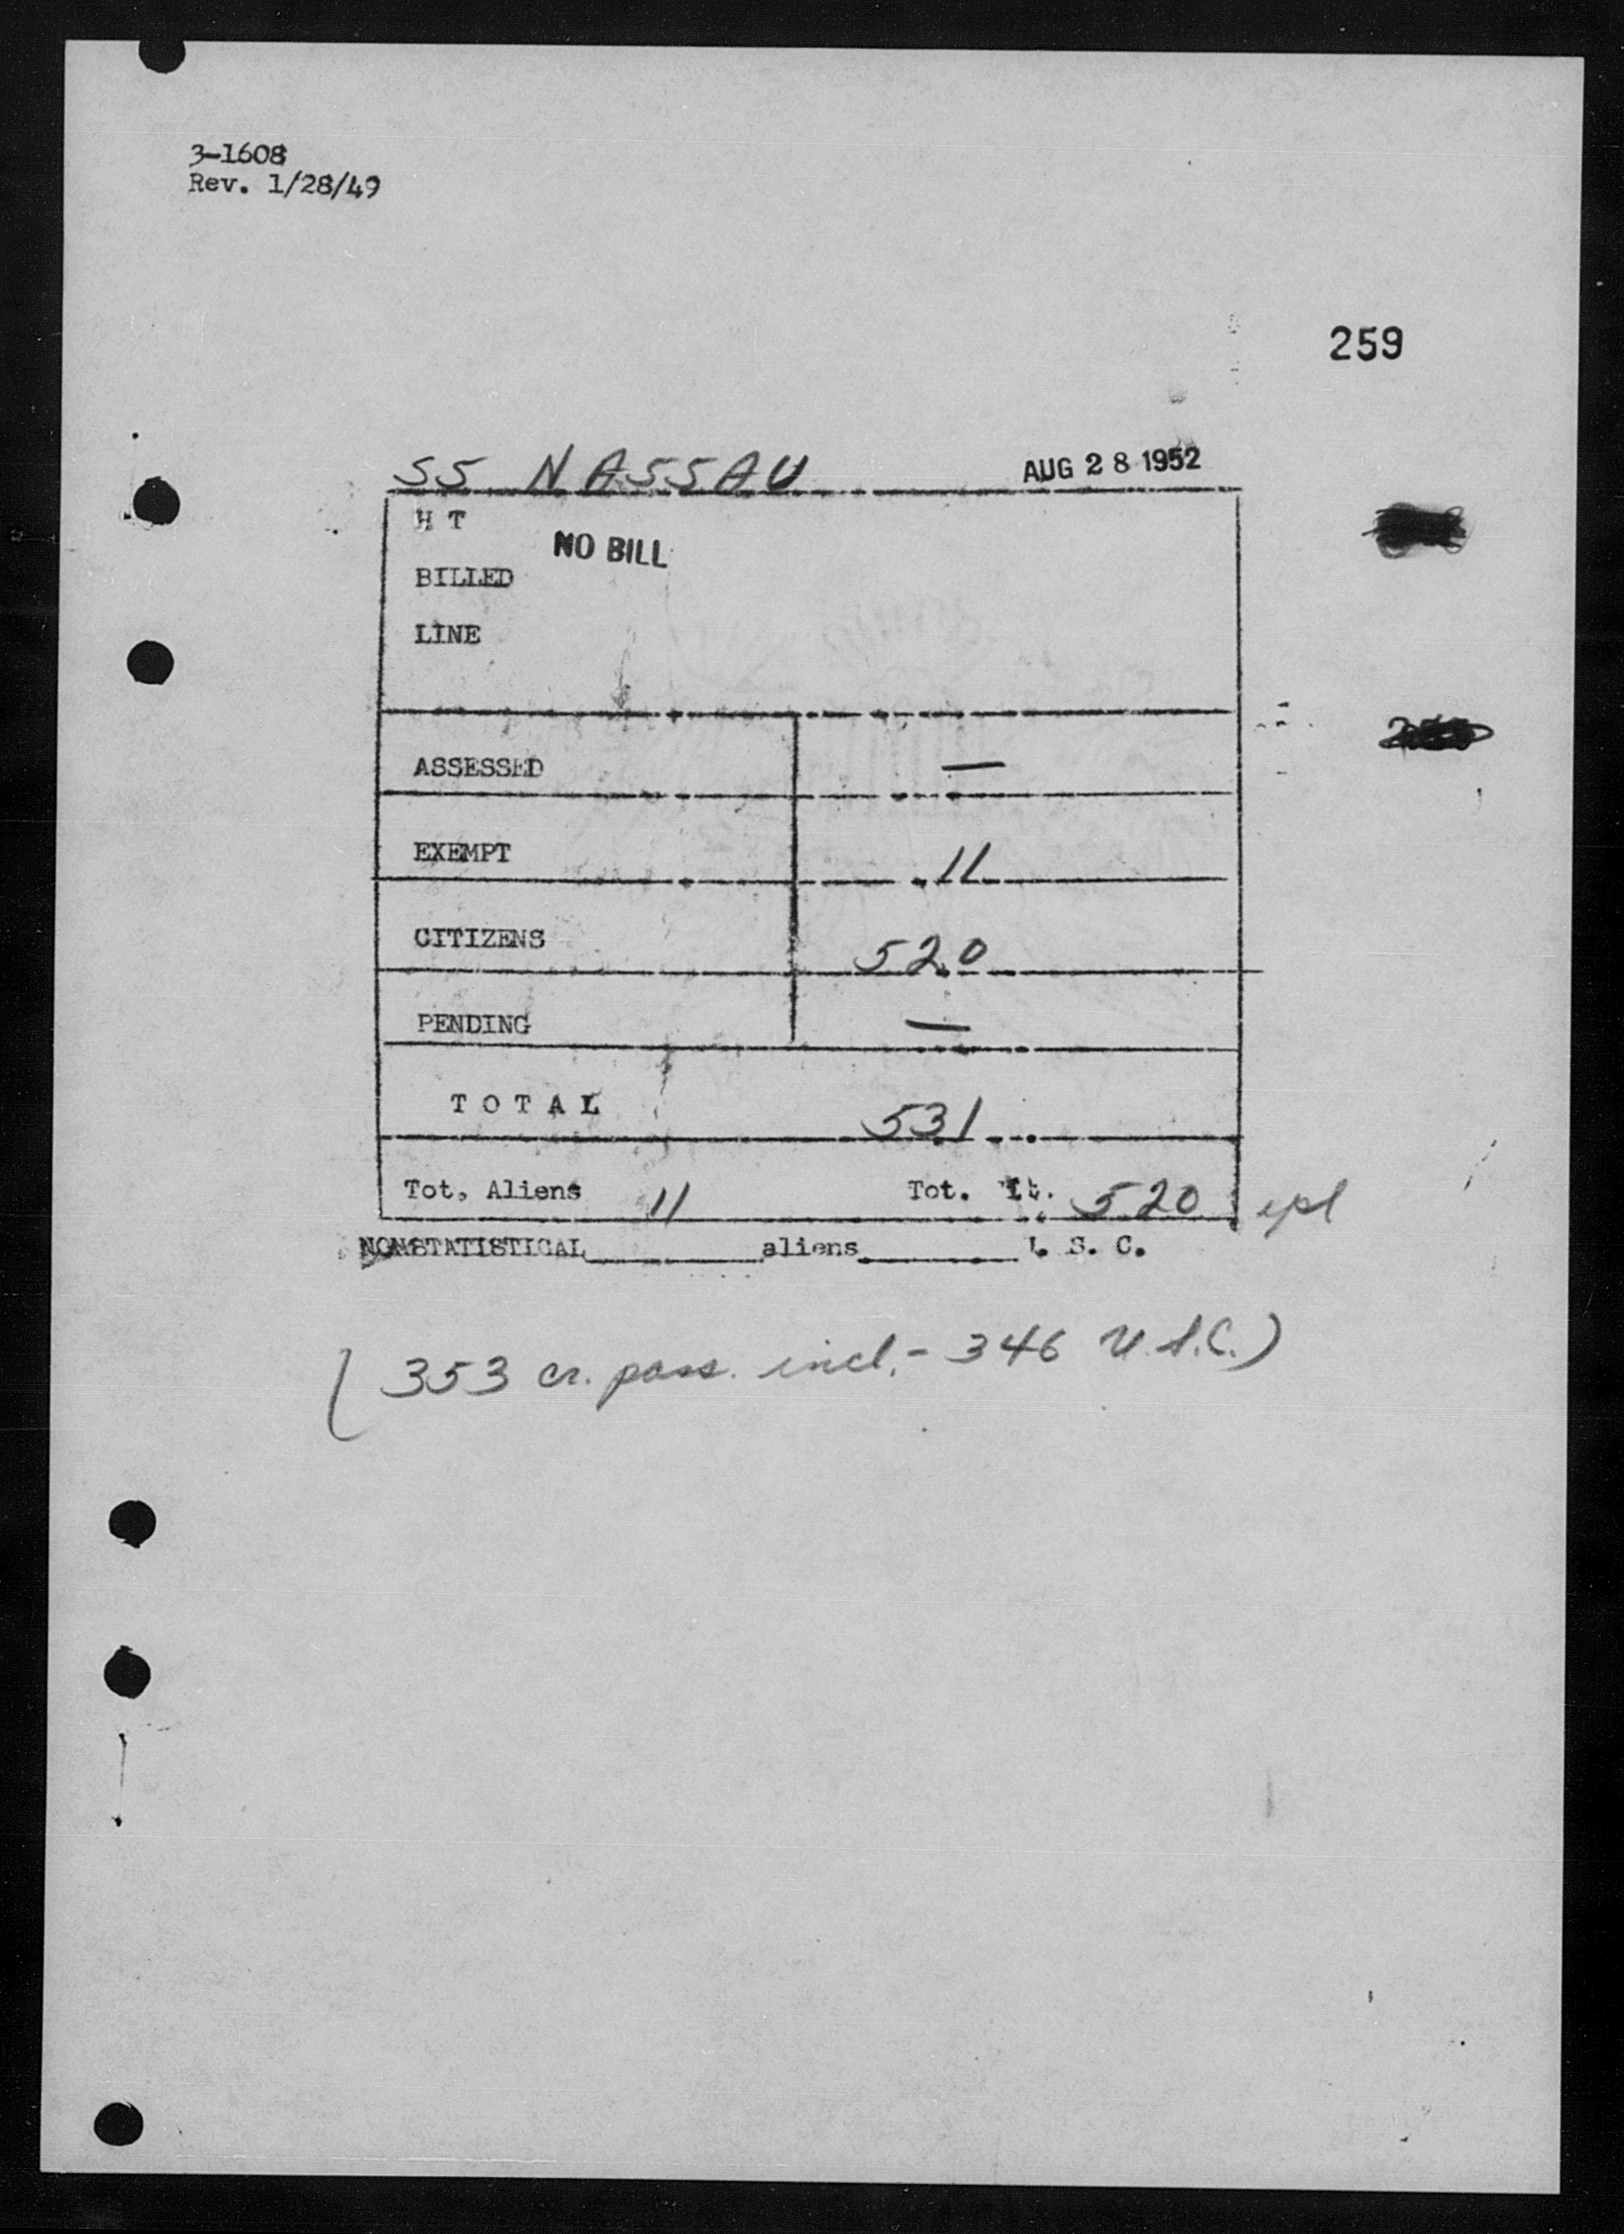 3-1608
Rev. 1/28/49
259
SS NASSAU AUG 28 1952
H T
NO BILL
BILLED
LINE
ASSESSED —
EXEMPT 11
CITIZENS 520
PENDING —
TOTAL 531
Tot. Aliens 11 Tot. 520
NONSTATISTICAL aliens S. C.
(353 cr. pass. incl. - 346 U.S.C.)